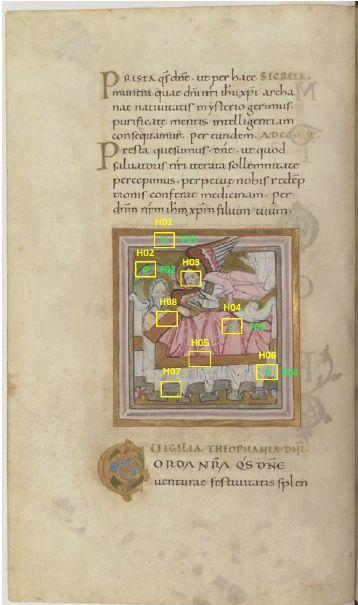 PRESTA qs dne. ut per haec SECRETA.
munera quae dni nri ihu xpi archa
nae nativitatis mysterio gerimus.
purificate mentis intelligentiam
consequamur. Per eundem. AD COMPL.
Presta quesumus dne. ut quod
salvatoris nri iterata sollemnitate
percepimus. perpetue nobis redēp
tionis conferat medicinam. Per
dnm nrm ihm xpm filium tuum.
H01
F01
H02
F02
H03
H08
H04
F03
H05
H06
F04
H07
VIGILIA THEOPHANIA DNI.
CORDA NRA QS DNE
venturae festivitatis splen